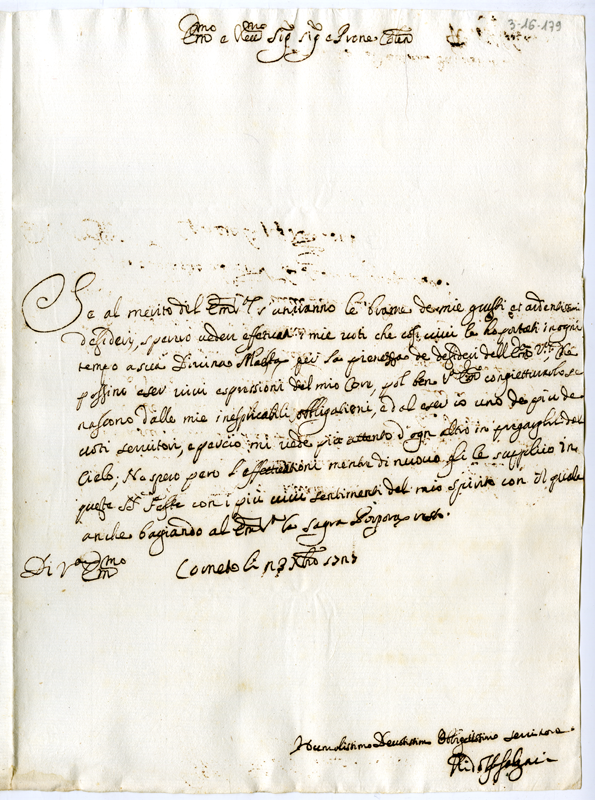 3-16-179
Emo e Revmo Sig Sig e Prone
Se al merito del Emza Vs uniranno le brame de miei giusti et ardentissimi
desiderij, spererò veder effetuati i miei voti che così vivi le ha portati in ogni
tempo a sua Divina Maestà per la pienezza de desiderij dell Emza Va Che
possino eser vivi espressioni del mio Core, pol ben Va Emza congietturarlo se
nascono dalle mie inesplicabili obbligationi, ed al eser io uno de più de
voti servitori, e perciò mi vede più attento d'ogn altro in pregarglili dal
Cielo; Ne spero però l'effettuationi mentre di nuovo gli le supplico in
queste Ste Feste con i più vivi sentimenti del mio spirito con il quale
anche bagiando al Emza Va la sagra Porpora resto.
Di Va Emza Corneto li Xbre
Humilissimo Devotissimo Obligatissimo Servitore